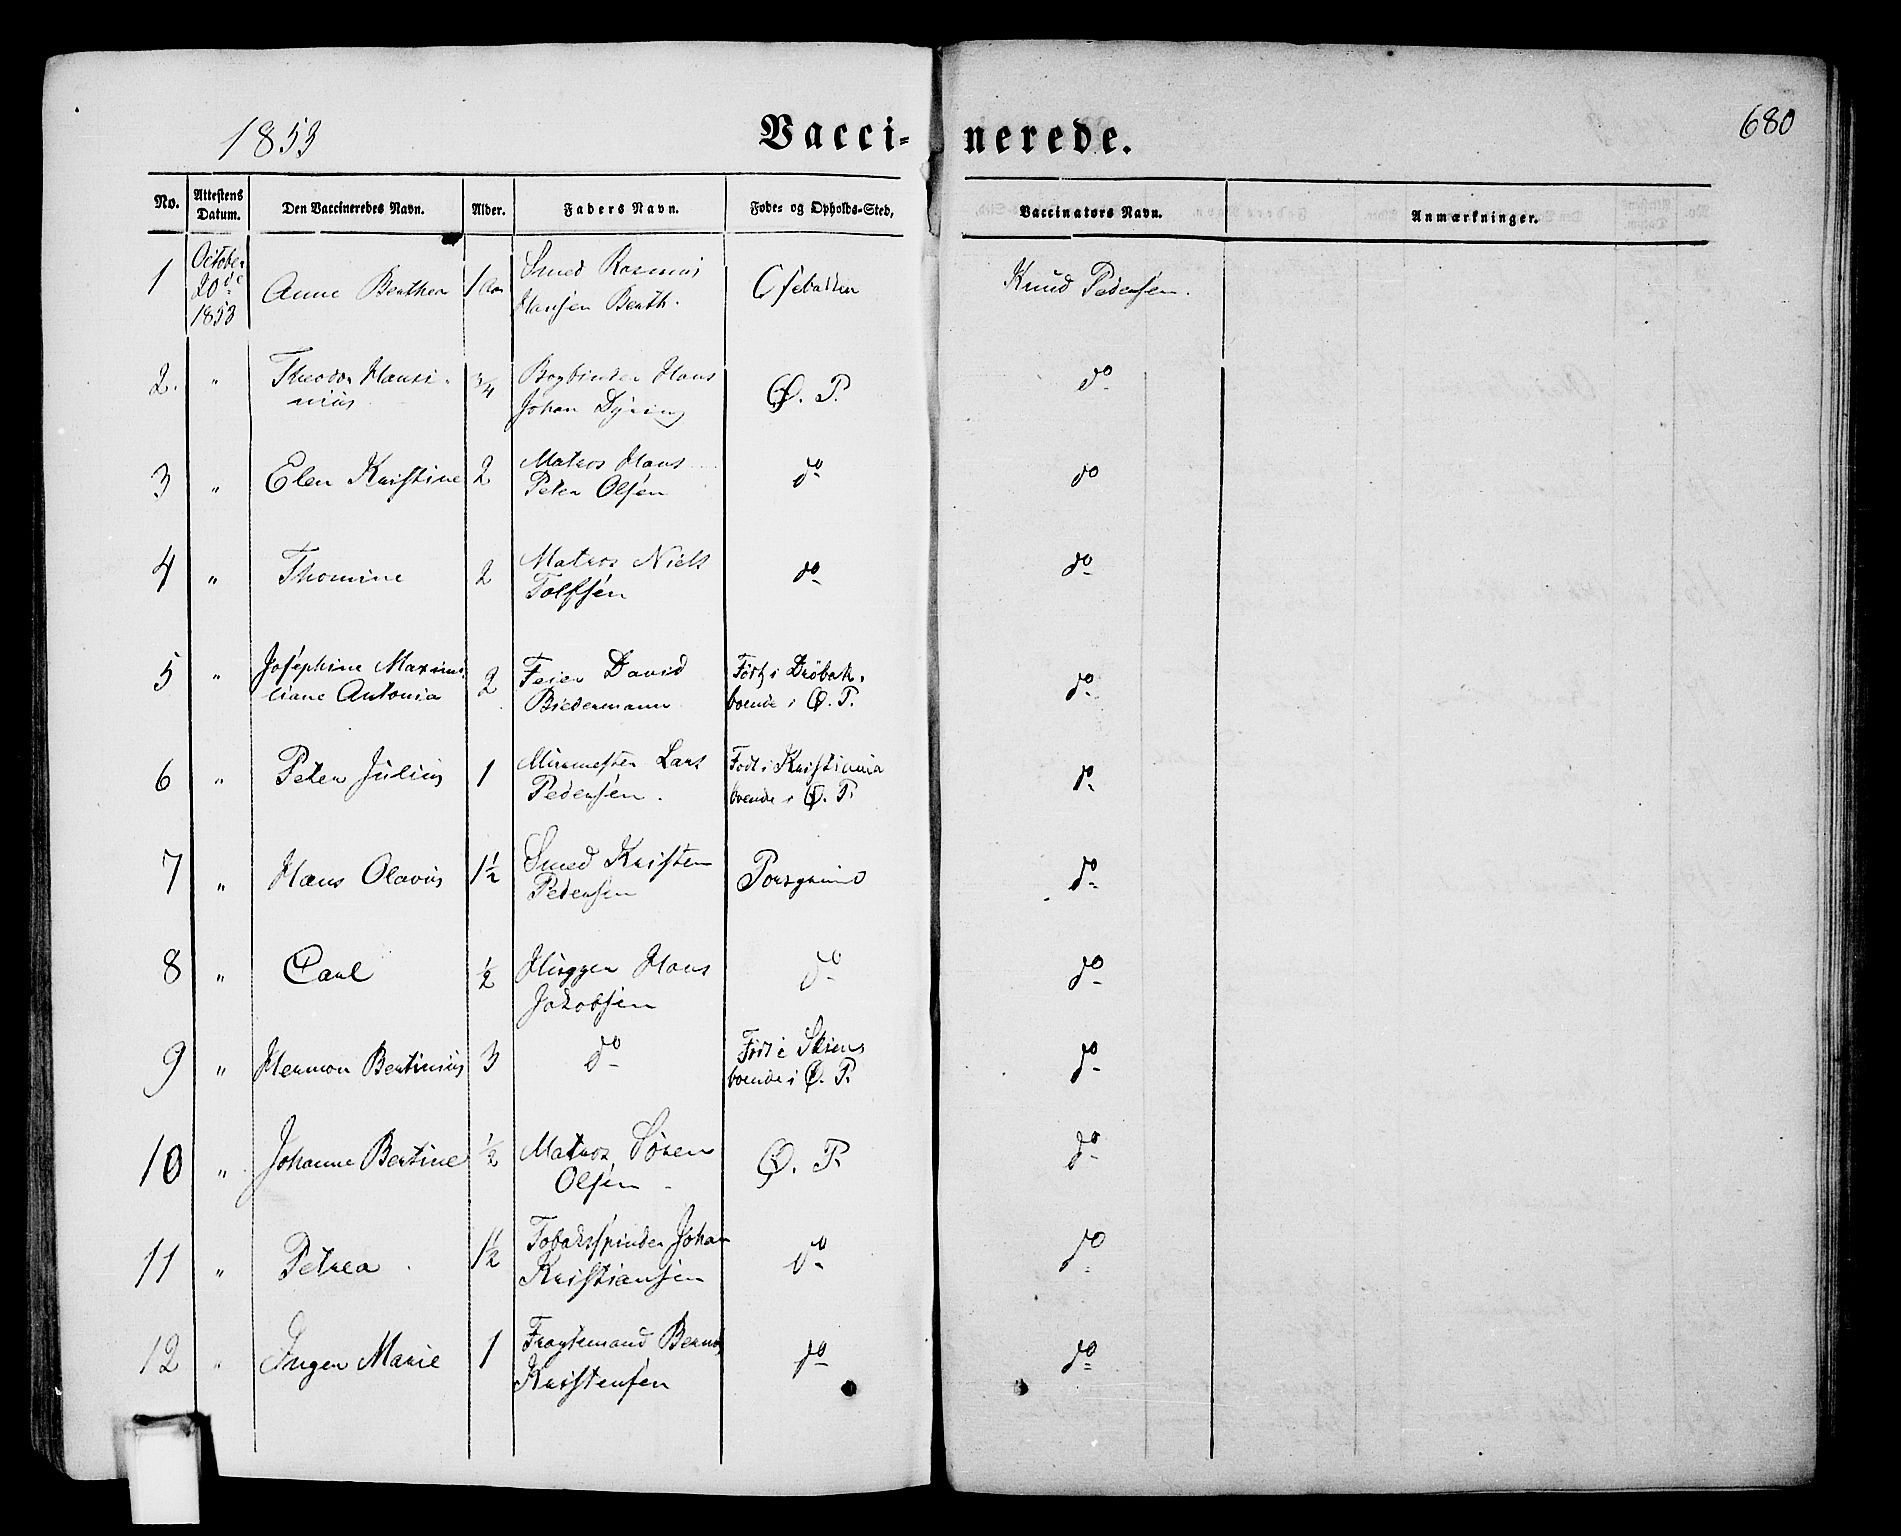 1853 Vacci-nerede. 680
No. Attestens Datum. Den Vaccineredes Navn. Alder. Faders Navn. Føde- og Opholds-Sted, Vaccinators Navn. Anmærkninger.
1 October 20de 1853 Anne Berthea 1 Aar Smed Rasmus Hansen Berth. Knud Pedersen.
2. " Theodor Hansinius 3/4 Bogbinder Hans Johan Dyring Ø. P. do
3 " Elen Kristine 2 Matros Hans Peter Olsen do do
4 " Thomine 2 Matros Niels Tolfsen do do
5 " Josephine Maximiliane Antonia 2 Feier David Biedermann Født i Drøbak, boende i Ø. P. do
6 " Peter Julius 1 Murmester Lars Pedersen. Født i Kristiania boende i Ø. P. do
7 " Hans Olavus 1 1/2 Smed Kristen Pedersen Porsgrund do
8 " Carl 1/2 Hans Jakobsen do do
9 " Herman Bertinius 3 do Født i Skien, boende i Ø. P. do
10 " Johanne Bertine 1/2 Matros Søren Olsen Ø. P. do
11 " Petrea 1 1/2 Tobaksspinder Johan Kristiansen do do
12 " Inger Marie 1 Fragtemand Bernt Kristensen do do